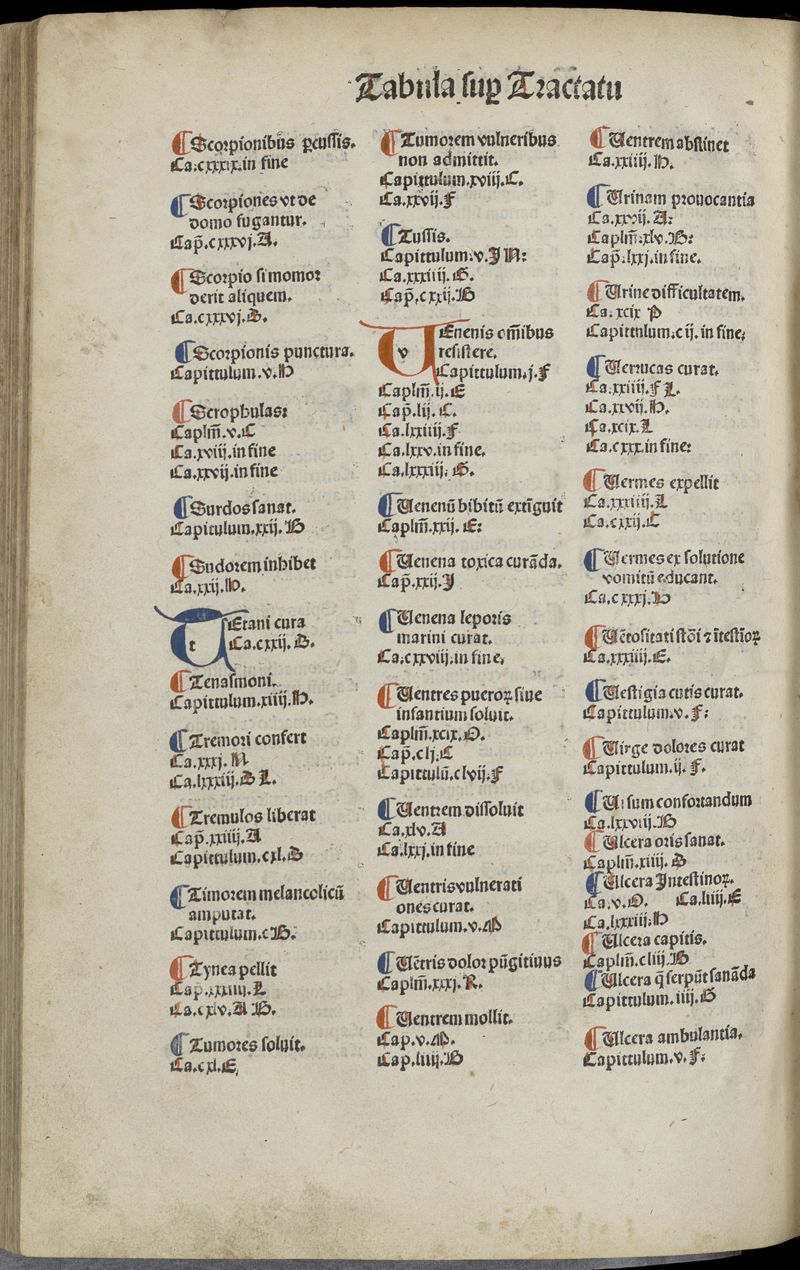 Tabula sup Tractatu
¶ Scorpionibus pcussis.
Ca.cxxxix.in fine
¶ Scorpiones vt de
domo fugantur.
Cap̄.cxxxvj.A.
¶ Scorpio si momor
derit aliquem.
Ca.cxxxvj.B.
¶ Scorpionis punctura.
Capittulum.v.H
¶ Scrophulas:
Caplm̄.v.C
Ca.xviij.in fine
Ca.xxvij.in fine
¶ Surdos sanat.
Capitulum.xxij.H
¶ Sudorem inhibet
Ca.xxij.H.
tEtani cura
Ca.cxxij.B.
¶ Tenasmoni.
Capittulum.xiiij.H.
¶ Tremori confert
Ca.xxxj.N
Ca.lxxxiij.B L.
¶ Tremulos liberat
Cap̄.xxiiij.A
Capittulum.cxl.B
¶ Timorem melancolicū
amputat.
Capittulum.c H.
¶ Tynea pellit
Cap.xxiiij.L
Ca.cxlv.A H.
¶ Tumores soluit.
Ca.cxl.E.
¶ Tumorem vulneribus
non admittit.
Capittulum.xviij.C.
Ca.xxvij.F
¶ Tussis.
Capittulum.v.J N:
Ca.xxxiiij.G.
Cap̄.cxxij.H
vEnenis om̄ibus
resistere.
Capittulum.j.F
Caplm̄.ij.E
Cap̄.lij.C.
Ca.lxxiiij.F
Ca.lxxv.in fine.
Ca.lxxxiij.G.
¶ Uenenū bibitū extīguit
Caplm̄.xxij.E:
¶ Uenena toxica curāda.
Cap̄.xxij.J
¶ Uenena leporis
marini curat.
Ca.cxxviij.in fine.
¶ Uentres pueroꝝ siue
infantium soluit.
Caplm̄.xcix.O.
Cap̄.clj.C
Capittulū.clvij.F
¶ Uentrem dissoluit
Ca.xlv.A
Ca.lxxj.in fine
¶ Uentris vulnerati
ones curat.
Capittulum.v.P
¶ Uētris dolor pūgitiuus
Caplm̄.xxxj.R.
¶ Uentrem mollit.
Cap.v.P.
Cap.liiij.H
¶ Uentrem abstinet
Ca.xxiiij.H.
¶ Urinam prouocantia
Ca.xxvij.A:
Caplm̄.xlv.H:
Cap̄.lxxj.in fine.
¶ Urine difficultatem.
Ca.xcix P
Capittulum.cij.in fine;
¶ Uerrucas curat.
Ca.xxiiij.F L.
Ca.xxvij.H.
Ca.xcix.L
Ca.cxxx.in fine:
¶ Uermes expellit
Ca.xxxiiij.L
Ca.cxxij.C
¶ Uermes ex solutione
vomitū educant.
Ca.cxxxj.H
¶ Uētositati stōi ⁊ ītestīoꝝ
Ca.xxxiiij.E.
¶ Uestigia cutis curat.
Capittulum.v.F:
¶ Uirge dolores curat
Capittulum.ij.F.
¶ Uisum confortandum
Ca.lxxviij.H
¶ Ulcera oris sanat.
Caplm̄.xiiij.B
¶ Ulcera Intestinoꝝ.
Ca.v.O. Ca.liiij.E
Ca.lxxxiij.H
¶ Ulcera capitis.
Caplm̄.cliij.H
¶ Ulcera q̄ serpūt sanāda
Capittulum.iiij.G
¶ Ulcera ambulantia.
Capittulum.v.F: